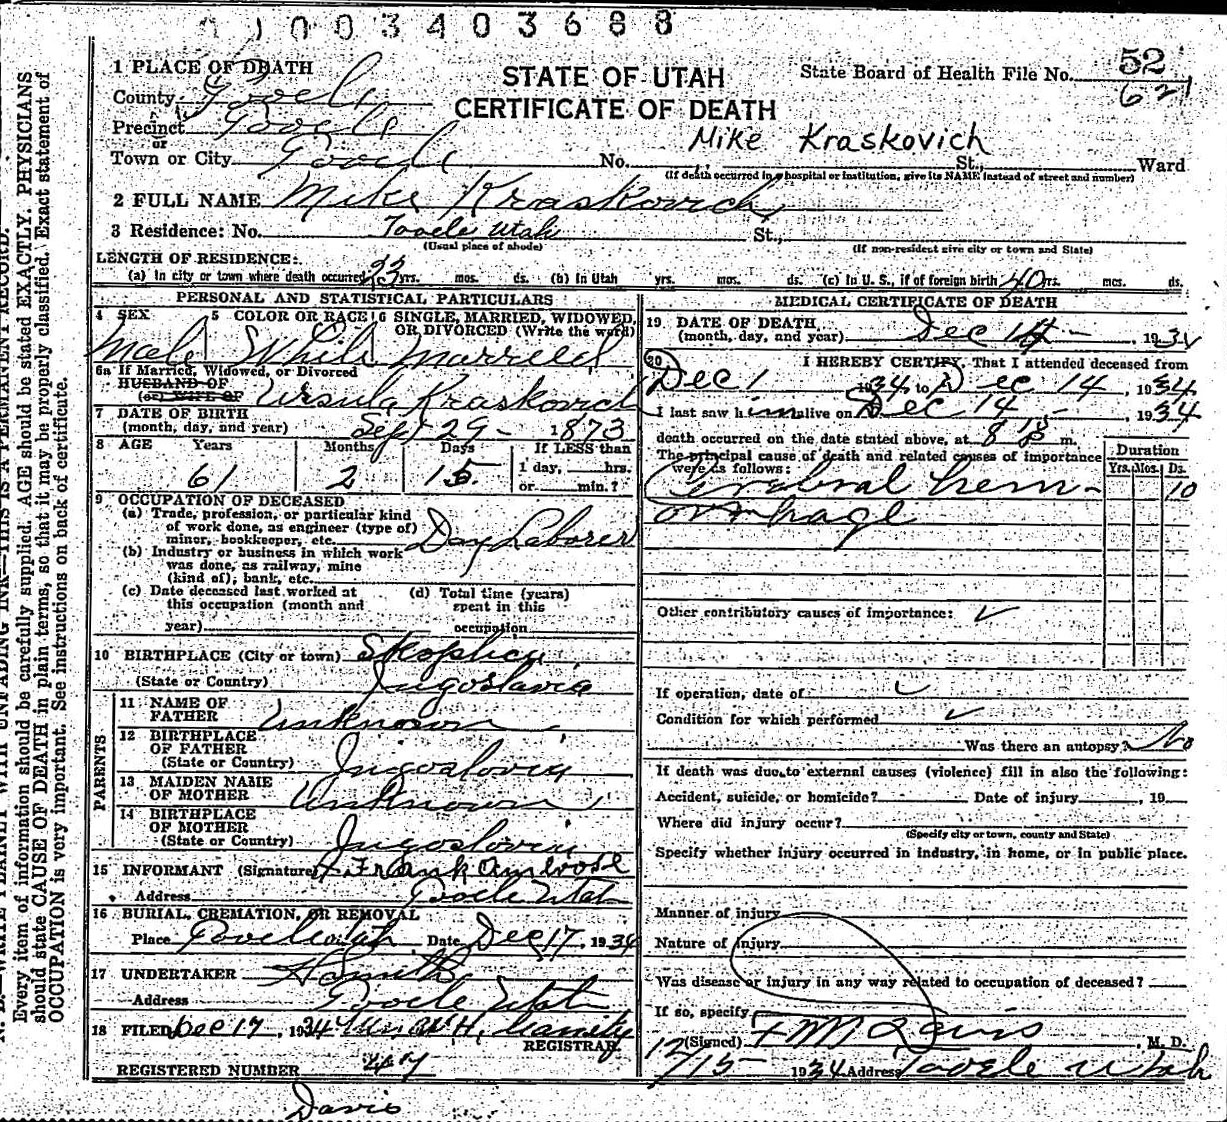 0 1 0 0 3 4 0 3 6 8 8
STATE OF UTAH
CERTIFICATE OF DEATH
State Board of Health File No. 52
62
1 PLACE OF DEATH
County Tooele
Precinct Tooele
or
Town or City Tooele No. St., Ward
Mike Kraskovich
(If death occurred in a hospital or institution, give its NAME instead of street and number)
2 FULL NAME Mike Kraskovich
3 Residence: No. Tooele Utah St.,
(Usual place of abode) (If non-resident give city or town and State)
LENGTH OF RESIDENCE:
(a) In city or town where death occurred 23 yrs. mos. ds. (b) In Utah yrs. mos. ds. (c) In U. S., if of foreign birth 40 yrs. mos. ds.
PERSONAL AND STATISTICAL PARTICULARS
4 SEX 5 COLOR OR RACE 6 SINGLE, MARRIED, WIDOWED, OR DIVORCED (Write the word)
Male White Married
6a If Married, Widowed, or Divorced
HUSBAND OF
(or) WIFE OF Ursula Kraskovich
7 DATE OF BIRTH
(month, day, and year) Sept 29 - 1873
8 AGE Years Months Days If LESS than
1 day, hrs.
61 2 15 or min.?
9 OCCUPATION OF DECEASED
(a) Trade, profession, or particular kind
of work done, as engineer (type of)
minor, bookkeeper, etc. Day Laborer
(b) Industry or business in which work
was done, as railway, mine
(kind of), bank, etc.
(c) Date deceased last worked at
this occupation (month and
year)
(d) Total time (years)
spent in this
occupation
10 BIRTHPLACE (City or town)
(State or Country) Jugoslavia
PARENTS
11 NAME OF
FATHER Unknown
12 BIRTHPLACE
OF FATHER
(State or Country) Jugoslovia
13 MAIDEN NAME
OF MOTHER Unknown
14 BIRTHPLACE
OF MOTHER
(State or Country) Jugoslovia
15 INFORMANT (Signature) Frank Ambrose
Address Tooele Utah
16 BURIAL, CREMATION, OR REMOVAL
Place Tooele Utah Date Dec 17, 1934
17 UNDERTAKER Smith
Address Tooele Utah
18 FILED Dec 17, 1934
REGISTRAR
REGISTERED NUMBER
Davis
MEDICAL CERTIFICATE OF DEATH
19 DATE OF DEATH
(month, day, and year) Dec 14 - , 1934
20 I HEREBY CERTIFY, That I attended deceased from
Dec 1 1934 to Dec 14, 1934
I last saw him alive on Dec 14 -, 1934
death occurred on the date stated above, at m.
The principal cause of death and related causes of importance
were as follows:
Duration
Yrs. Mos. Ds.
Cerebral hem- 10
orrhage
Other contributory causes of importance: ✓
If operation, date of ✓
Condition for which performed ✓
Was there an autopsy? No
If death was due to external causes (violence) fill in also the following:
Accident, suicide, or homicide? Date of injury , 19
Where did injury occur?
(Specify city or town, county and State)
Specify whether injury occurred in industry, in home, or in public place.
Manner of injury
Nature of injury
Was disease or injury in any way related to occupation of deceased?
If so, specify
(Signed) F M Davis, M. D.
12/15 1934 Address Tooele Utah
Every item of information should be carefully supplied. AGE should be stated EXACTLY. PHYSICIANS
should state CAUSE OF DEATH in plain terms, so that it may be properly classified. Exact statement of
OCCUPATION is very important. See instructions on back of certificate.